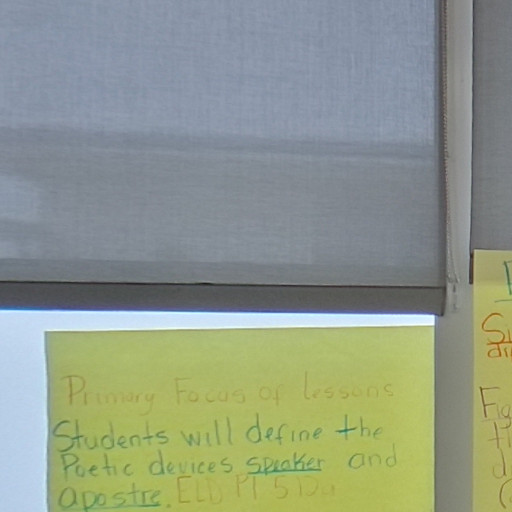 Primary Focus of lessons
Students will define the
Poetic devices speaker and
apostre. ELD PI 5
Su
di
Fig